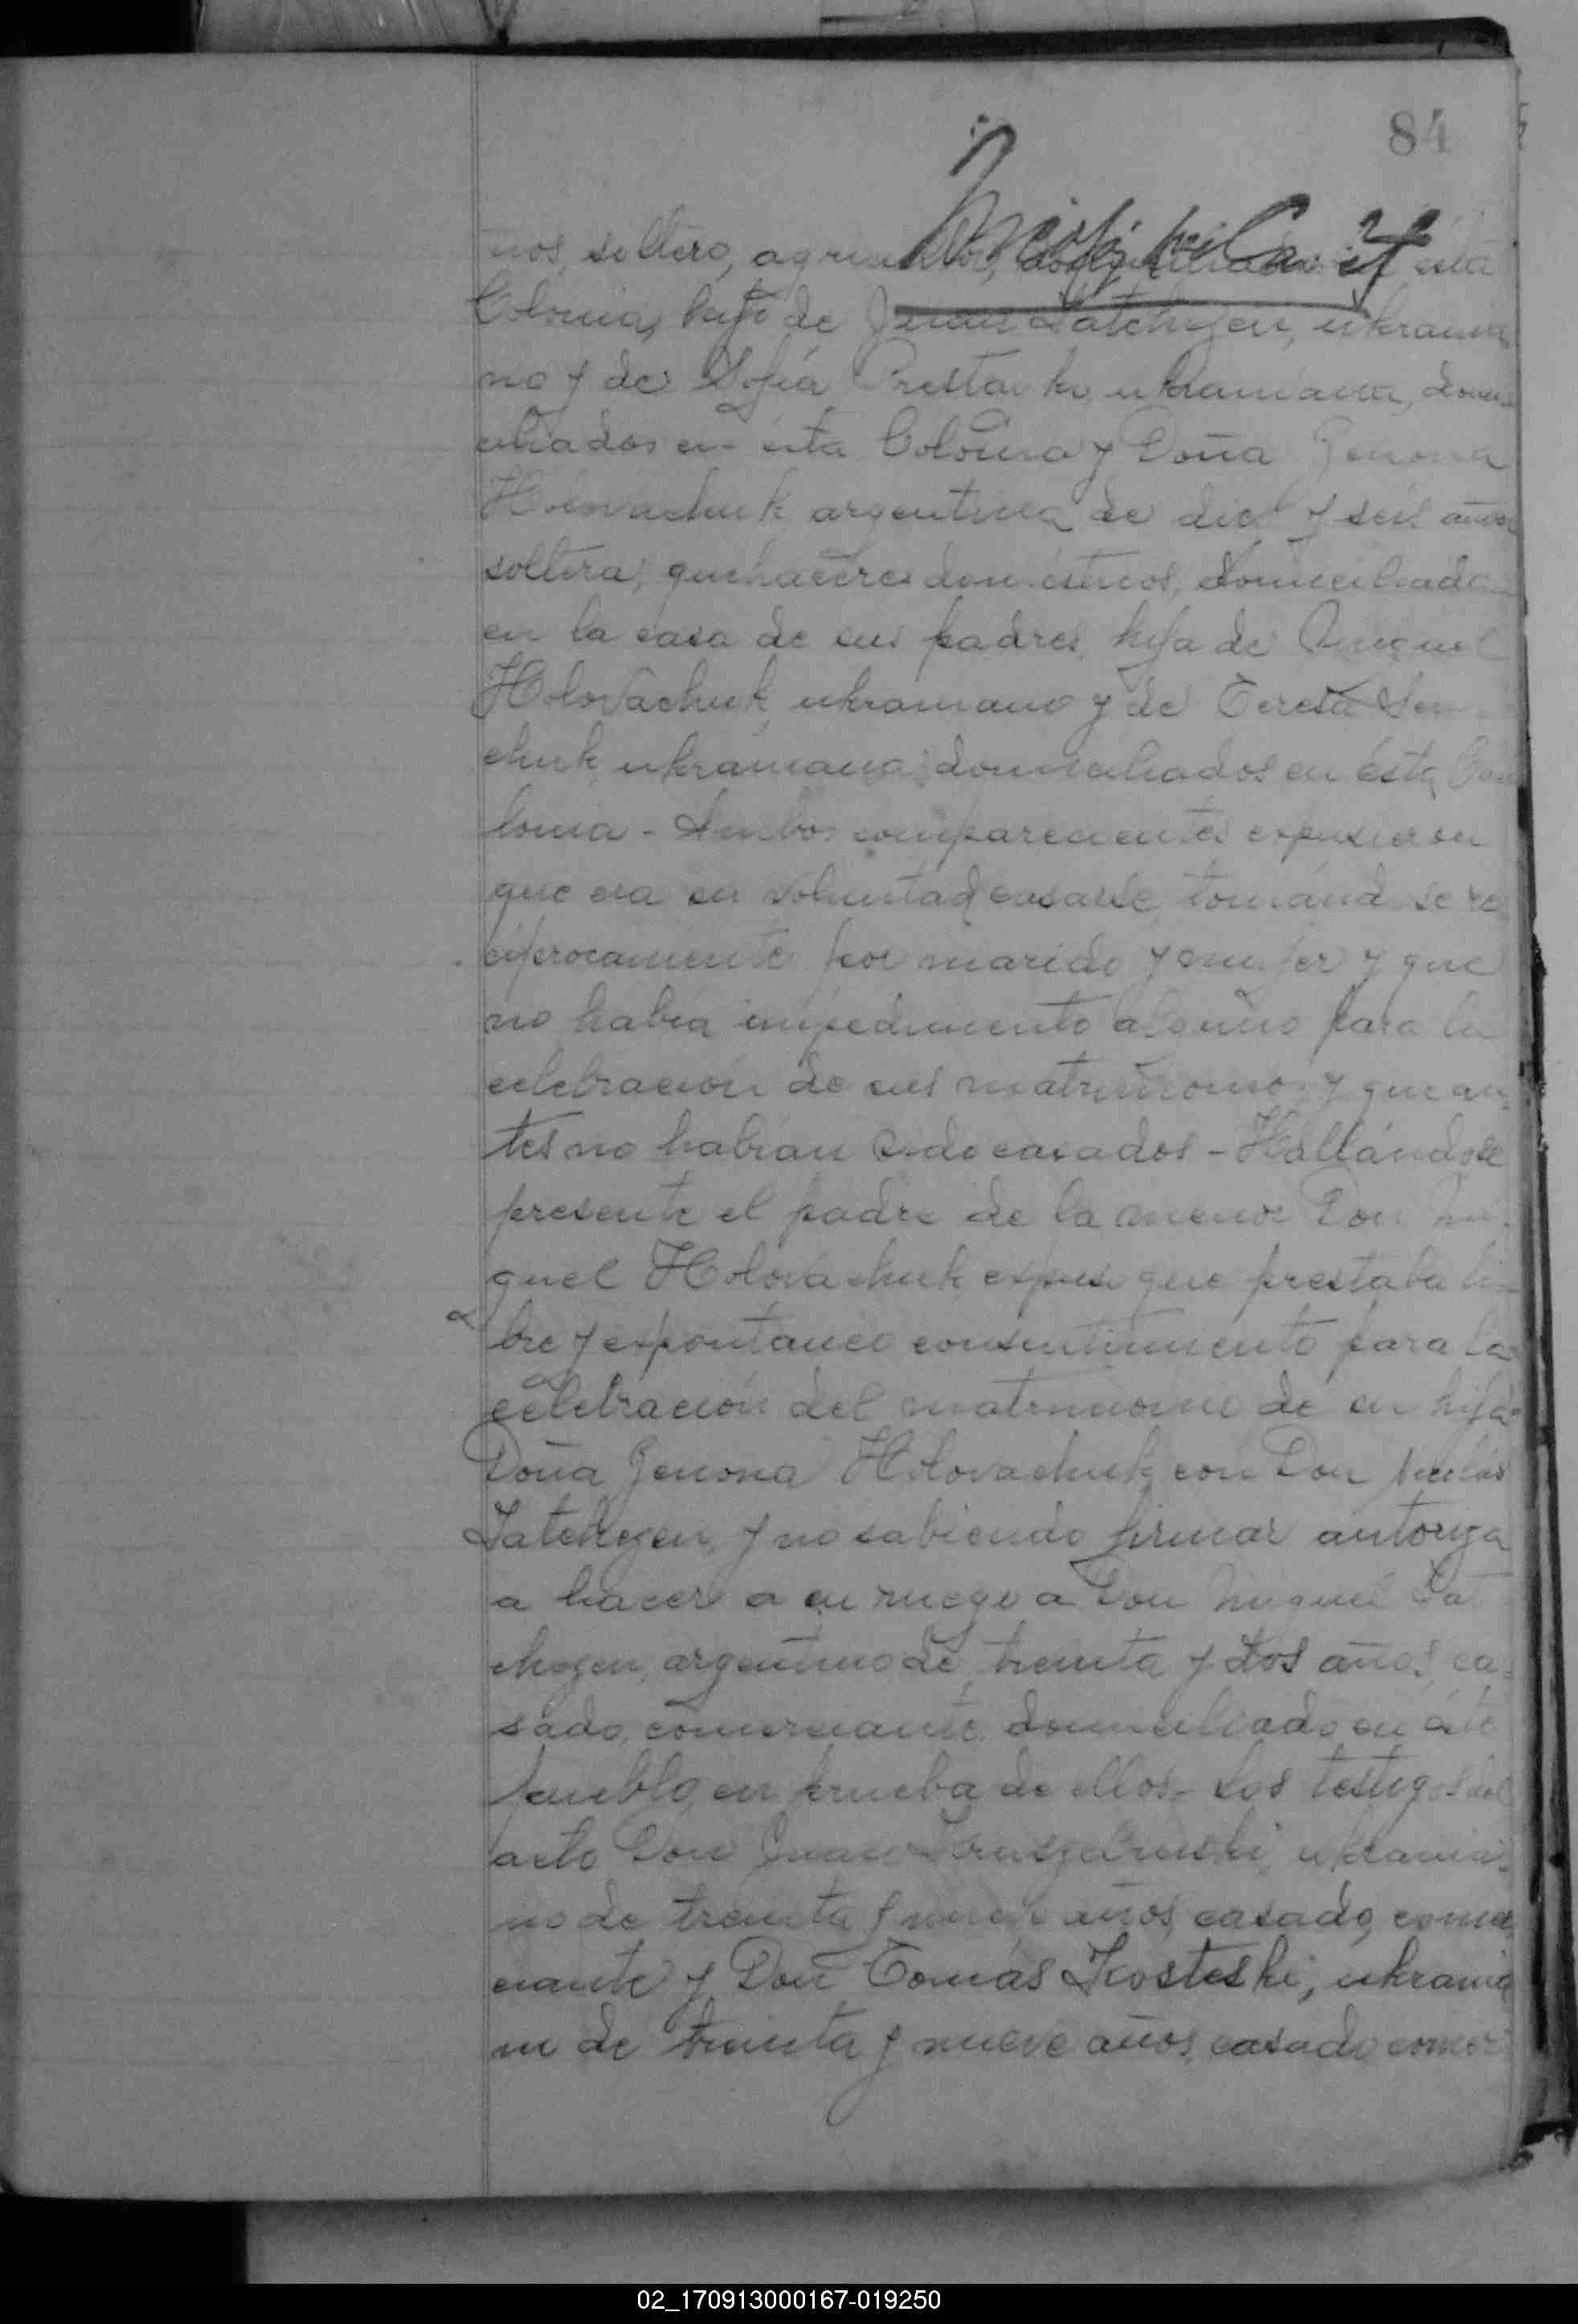 84
nos, soltero, agricultor, domiciliado en esta
Colonia, hijo de Juan Tatchyen, ukrania
no y de Sofía ukraniana, domi
ciliados en ésta Colonia y Doña Genona
Holovachuk argentina de diez y seis años
soltera, quehaceres domésticos, domiciliada
en la casa de sus padres, hija de Miguel
Holovachuk, ukraniano y de Teresa Sen
chuk ukraniana, domiciliados en ésta Co
lonia - Ambos comparecientes expusieron
que era su voluntad casarse tomándose re
ciprocamente por marido y mujer y que
no había impedimento alguno para la
celebración de sus matrimonio y que an
tes no habían sido casados - Hallándose
presente el padre de la menor Don Mi
guel Holovachuk expuso que prestaba li
bre y espontaneo consentimiento para la
celebración del matrimonio de su hija
Doña Genona Holovachuk con Don Nicolás
Tatchyen, y no sabiendo firmar autoriza
a hacer a su ruego a Don Miguel Tat
chyen, argentino de treinta y dos años, ca
sado, comerciante, domiciliado en éste
pueblo, en prueba de ellos - Los testigos del
acto Don Juan ukrania
no de treinta y nueve años, casado, comer
ciante y Don Tomás Kosteski, ukrania
no de treinta y nueve años, casado, comer
02_170913000167-019250